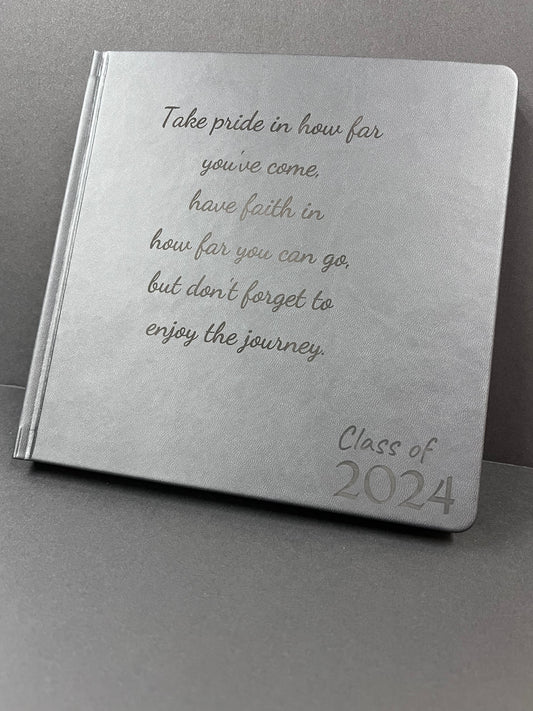 Take pride in how far
you've come,
have faith in
how far you can go,
but don't forget to
enjoy the journey.
Class of
2024